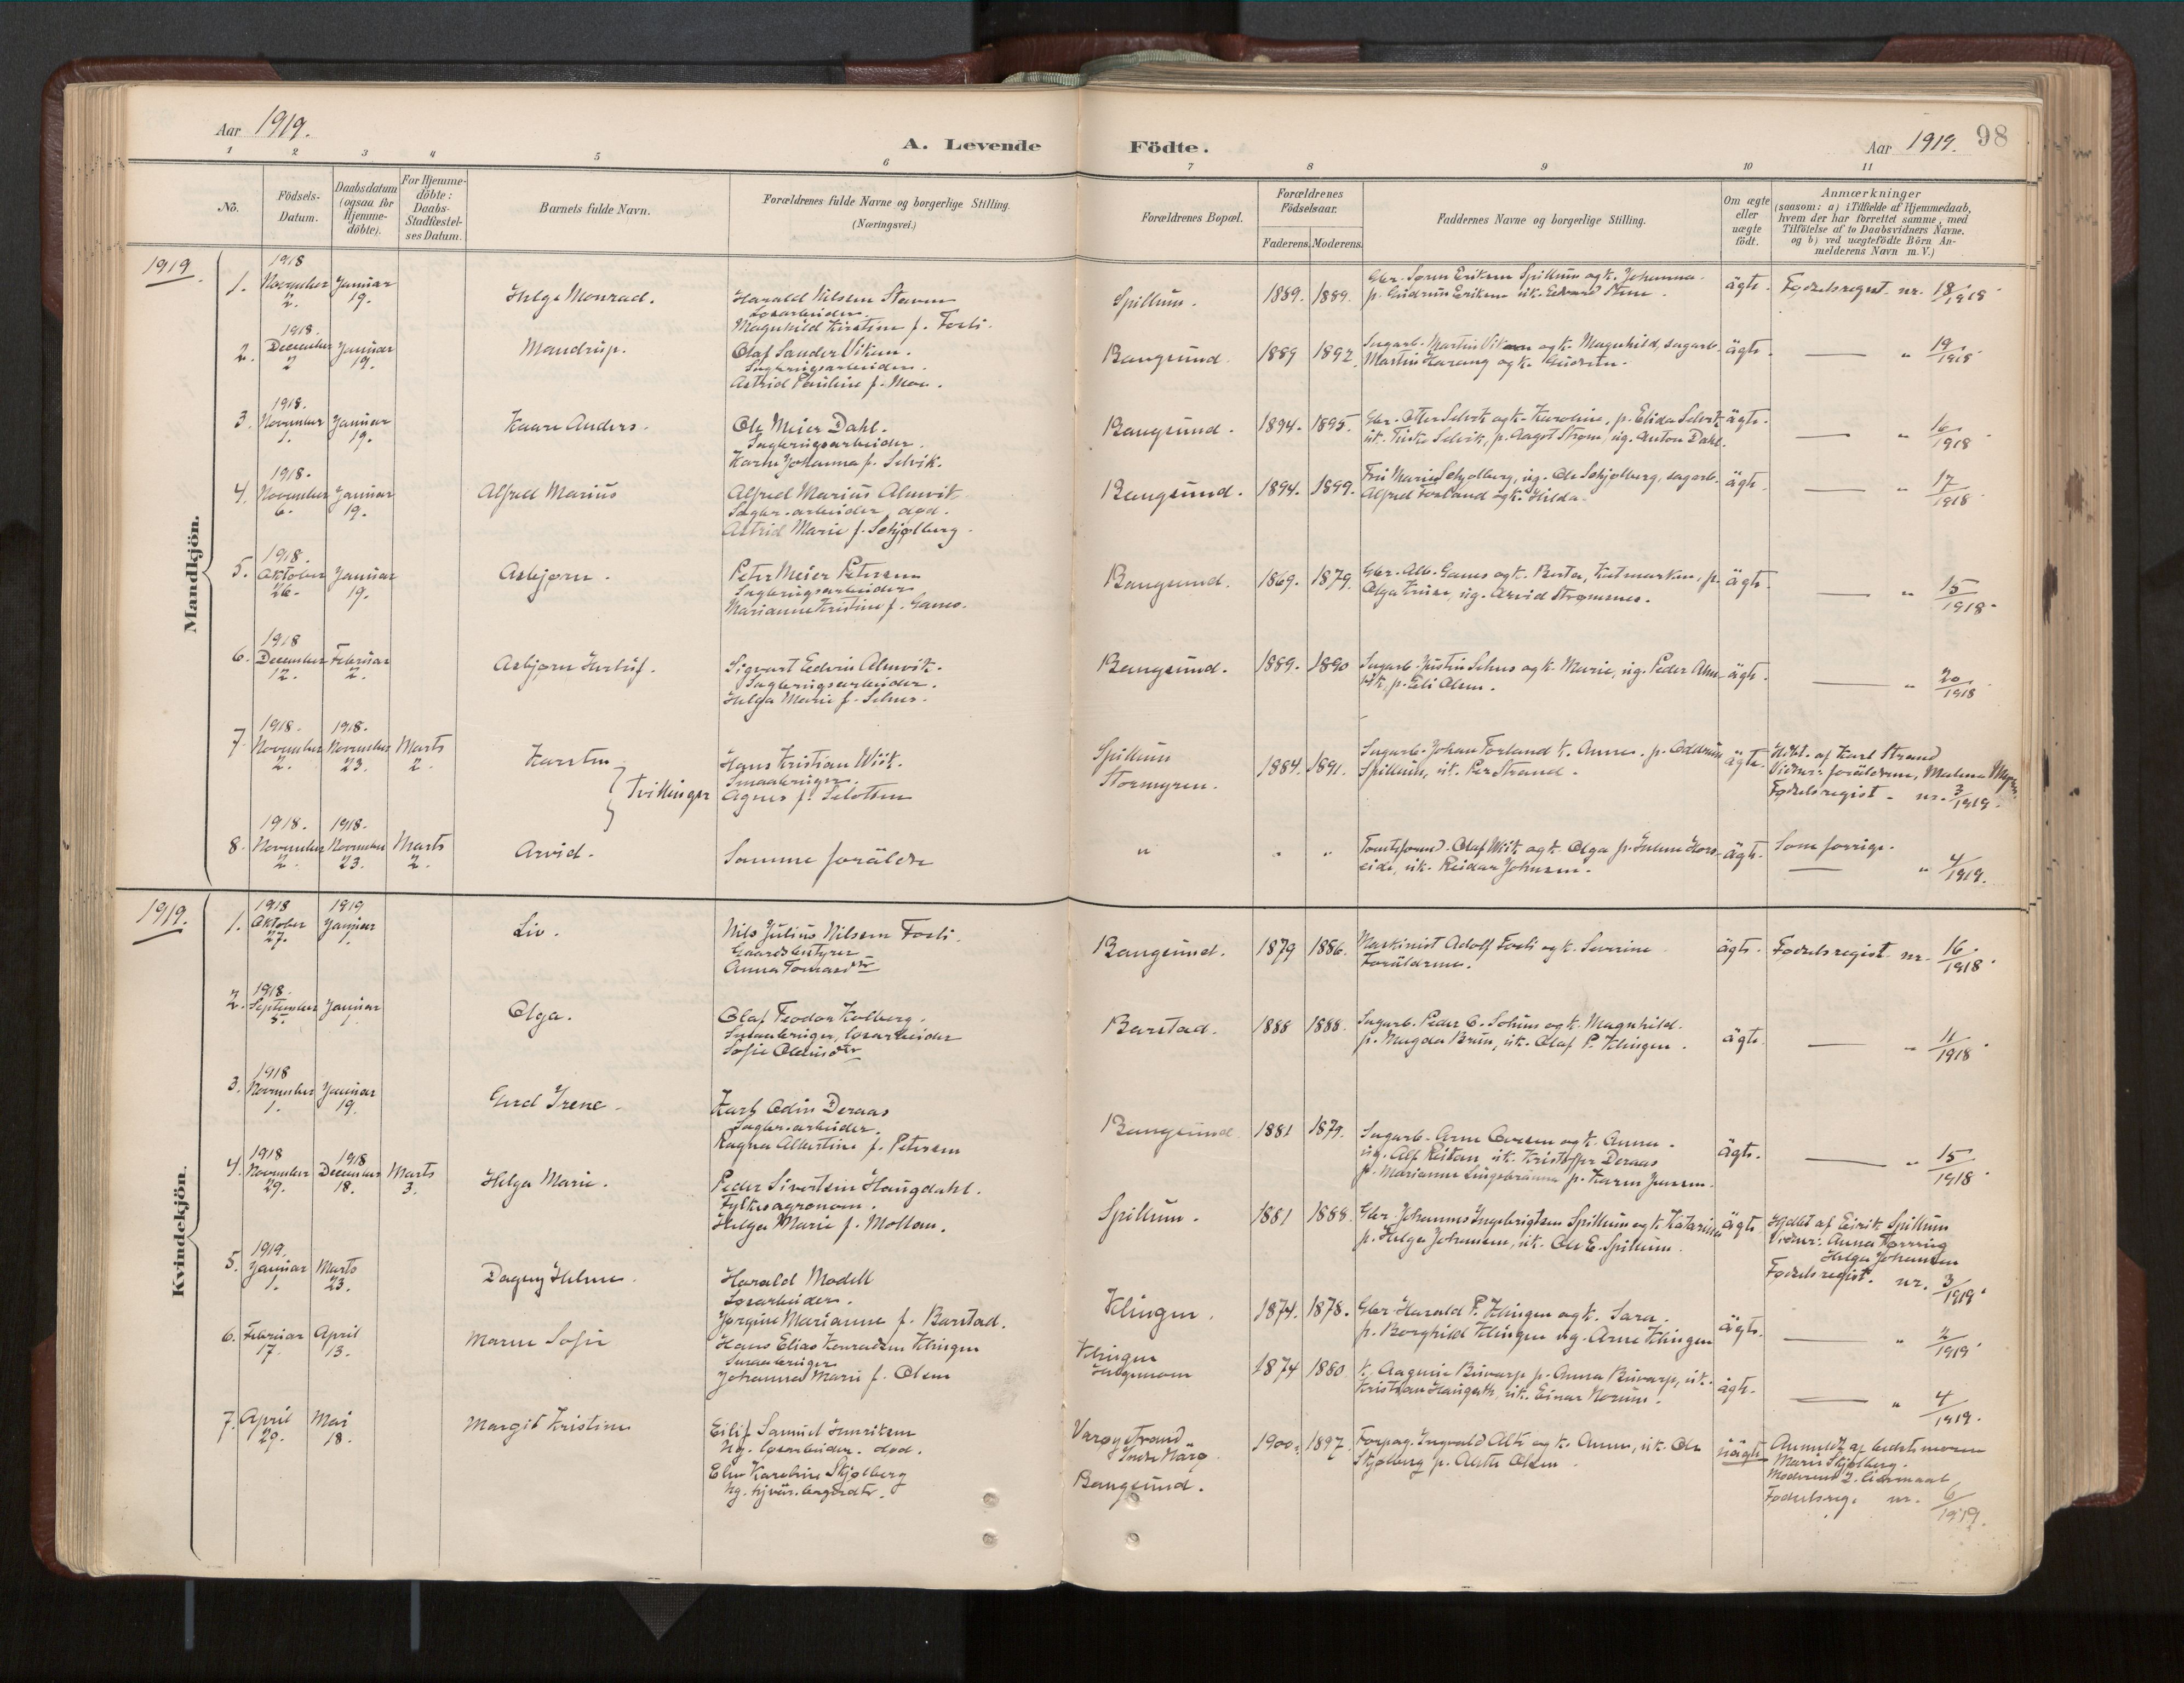 Aar 1919.
A. Levende Födte.
Aar 1919. 98
1 2 3 4 5 6 7 8 9 10 11
No.
Födsels-
Datum.
Daabsdatum
(ogsaa for
Hjemme-
döbte).
For Hjemme-
döbte:
Daabs-
Stadfæstel-
ses Datum.
Barnets fulde Navn.
Forældrenes fulde Navne og borgerlige Stilling.
(Næringsvei.)
Forældrenes Bopæl.
Forældrenes
Födselsaar.
Faderens. Moderens.
Faddernes Navne og borgerlige Stilling.
Om ægte
eller
uægte
födt.
Anmærkninger
(saasom: a) i Tilfælde af Hjemmedaab,
hvem der har forrettet samme, med
Tilföielse af to Daabsvidners Navne.
og b) ved uægtefödte Börn An-
melderens Navn m. V.)
Mandkjön.
1919.
1. 1918 November 2. Januar 19.
Helge Monrad.
Harald Nilsen Staven
Løsarbeider.
Magnhild Kirstine f. Fosli.
Spillum. 1889. 1889.
Gbr. Søren Eriksen Spillum og k. Johanna.
p. Gudrun Eriksen uk. Edvard
ägte. Fødselsregist. nr. 18/1918
2. 1918. December 2 Januar 19.
Mandrup.
Olaf Sander Vikan.
Sagbrugsarbeider.
Astrid Pauline f. Moe.
Bangsund 1889 1892.
Sagarb. Martin Vikan og k. Magnhild, sagarb.
Martin Harang og k.
ägte. — " 19/1918
3. 1918. November 1. Januar 19.
Kaare Anders.
Ole Meier Dahl.
Sagbrugsarbeider.
Karen Johanna f. Selvik.
Bangsund. 1894. 1895.
Gbr. Otter Selvik og k. Karoline, p. Elida Selvik
uk. Selvik, p. Aagot Strøm, ug. Anton Dahl.
ägte. — " 16/1918
4. 1918. November 6. Januar 19.
Alfred Marius
Alfred Marius Almvik
Sagbr. arbeider, død.
Astrid Marie f. Schjølberg
Bangsund. 1894. 1899.
Fru Marie Schjølberg, ug. Ole Schjølberg, sagarb.
Alfred Forland og k. Hilda.
ägte. — " 17/1918
5. 1918. Oktober 26. Januar 19.
Asbjørn.
Peter Meier Petersen
Sagbrugsarbeider
Marianne Kristine f. Ganes.
Bangsund. 1869. 1879.
Gbr. Alb. Ganes og k. Berta, Katmarken, p.
Olga Kruse, ug. Arvid Strømmes.
ägte. — " 15/1918.
6. 1918 December 12. Februar 2.
Asbjørn Herluf.
Sigvart Edvin Almvik.
Sagbrugsarbeider.
Helga Marie f. Selnes.
Bangsund. 1889. 1890
Sagarb. Justin Selnes og k. Marie, ug. Peder Alm-
vik, p. Eli Olsen.
ägte. — " 20/1918
7. 1918. November 2. 1918. November 23. Marts 2.
Karsten
Tvillinger
Hans Kristian Wiik.
Smaabruger.
Agnes f. Selotten
Spillum
Stormyren.
1884. 1891.
Sagarb. Johan Forland k. Anna. p. Oddrun
Spillum, uk. Per Strand.
ägte. Hdbt. af Karl Strand
Vidner: foräldrene, Malena
Fødselsregist. nr. 3/1919.
8. 1918. November 2. 1918. November 23. Marts 2.
Arvid.
Samme forälder
" " "
Tomtsformd. Olaf Wiik og k. Olga p.
eide, uk. Reidar Johnsen.
ägte. Som forrige.
— " 4/1919.
Kvindekjön.
1919.
1. 1918 Oktober 27. 1919 Januar 1.
Liv.
Nils Julius Nilsen Fosli.
Gaardsbestyrer
Anna
Bangsund. 1879 1886.
Maskinist Adolf Fosli og k. Severine
Foräldrene.
ägte. Fødselsregist. nr. 16/1918.
2. 1918. September 5. Januar 1.
Olga.
Olaf Teodor Kolberg.
Smaabruger, løsarbeider
Sofie
Barstad. 1888 1888.
Sagarb. Peder O. og k. Magnhild.
p. Magda Brun, uk. Olaf P. Klingen.
ägte. — " 11/1918.
3. 1918 November 1. Januar 19.
Gerd Irene.
Karl Odin Deraas
Sagbr. arbeider.
Ragna Albertine f. Petersen
Bangsund. 1881 1879.
Sagarb. Arne Ovesen og k. Anna.
ug. Alf Reitan uk. Kristoffer Deraas
p. Marianne p. Karen Jensen.
ägte. — " 15/1918.
4. 1918 November 29. 1918 December 18. Marts 3.
Helga Marie.
Peder Sivertsen Haugdahl.
Fylkesagronom.
Helga Marie f. Mollan.
Spillum. 1881 1888.
Gbr. Johannes Ingebrigtsen Spillum og k. Katarina
p. Helga Johansen, uk. Ole E. Spillum.
ägte. Hjdbt af Eirik Spillum
Vidner: Anna
Helga Johansen
Fødselsregist. nr. 3/1919.
5. 1919. Januar 1. Marts 23.
Dagny Helene.
Harald Modell
Løsarbeider.
Jørgine Marianne f. Barstad.
Klingen. 1874. 1878.
Gbr. Harald P. Klingen og k. Sara.
p. Borghild Klingen ug. Arne Klingen
ägte. — " 2/1919.
6. Februar 17. April 13.
Maren Sofie
Hans Elias Konradsen Klingen
Smaabruger
Johanna Marie f. Olsen
Klingen
1874 1880
k. Aagusie Buvarp p. Anna Buvarp, uk.
Kristian Haugseth, uk. Einar Norum.
ägte. — " 4/1919.
7. April 29. Mai 18.
Margit Kristine
Eilif Samuel Henriksen
Ug. løsarbeider. død.
Else Karoline Skjølberg
Ug.
Varøy strand
Indre Närø
Bangsund.
1900. 1897.
Forpag. Ingvald og k. Anna, uk. Ole
Skjølberg p. Olsen.
uägte Anmeldt af bedstmoren
Marie Skjølberg.
Moderens 2. leiermaal
Fødselsreg. nr. 6/1919.